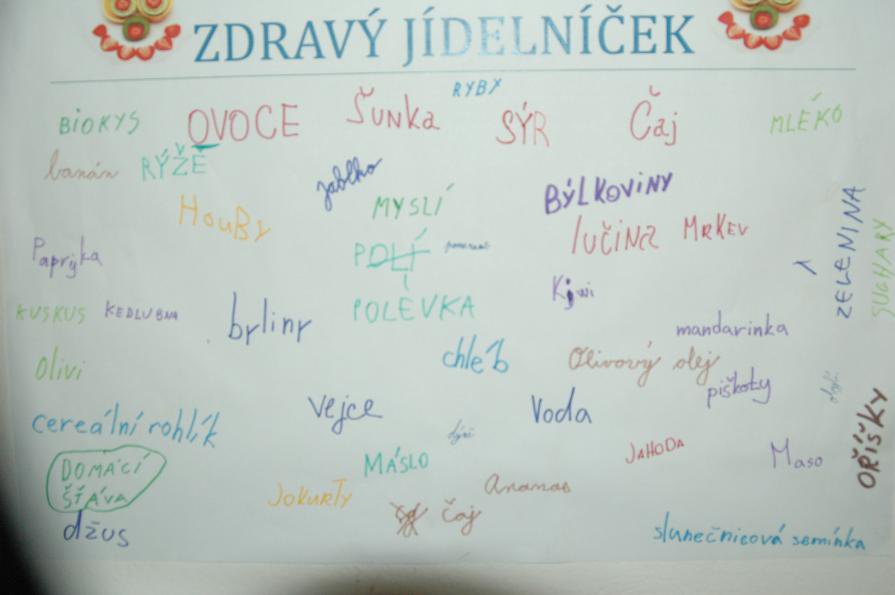 ZDRAVÝ JÍDELNÍČEK
RYBY
BIOKYS OVOCE ŠUNKA SÝR Čaj MLÉKO
banán RÝŽE jablko
MYSLÍ BÝLKOVINY
HouBy lučina MRKEV ZELENINA
Papryka SUCHARY
Kiwi
KUSKUS KEDLUBNA byliny POLÉVKA
mandarinka
Olivi chleb Olivový olej
piškoty
cereální rohlík Vejce Voda
dýni
OŘÍŠKY
DOMÁCÍ
ŠŤÁVA
MÁSLO JAHODA Maso
JOKURTY Ananas
džus čaj slunečnicová semínka